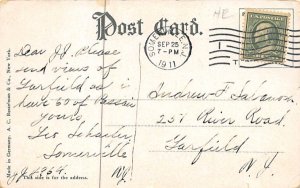 Post Card.
SOMERVILLE N.J.
SEP 25
7-PM
1911
Dear J.J. Please
send views of
Garfield as I
have 50 of
yours.
Somerville
N.J.
Andrew F.
257 River Road
Garfield
N.J.
Made in Germany. A. C. Bosselman & Co., New York.
This side is for the address.